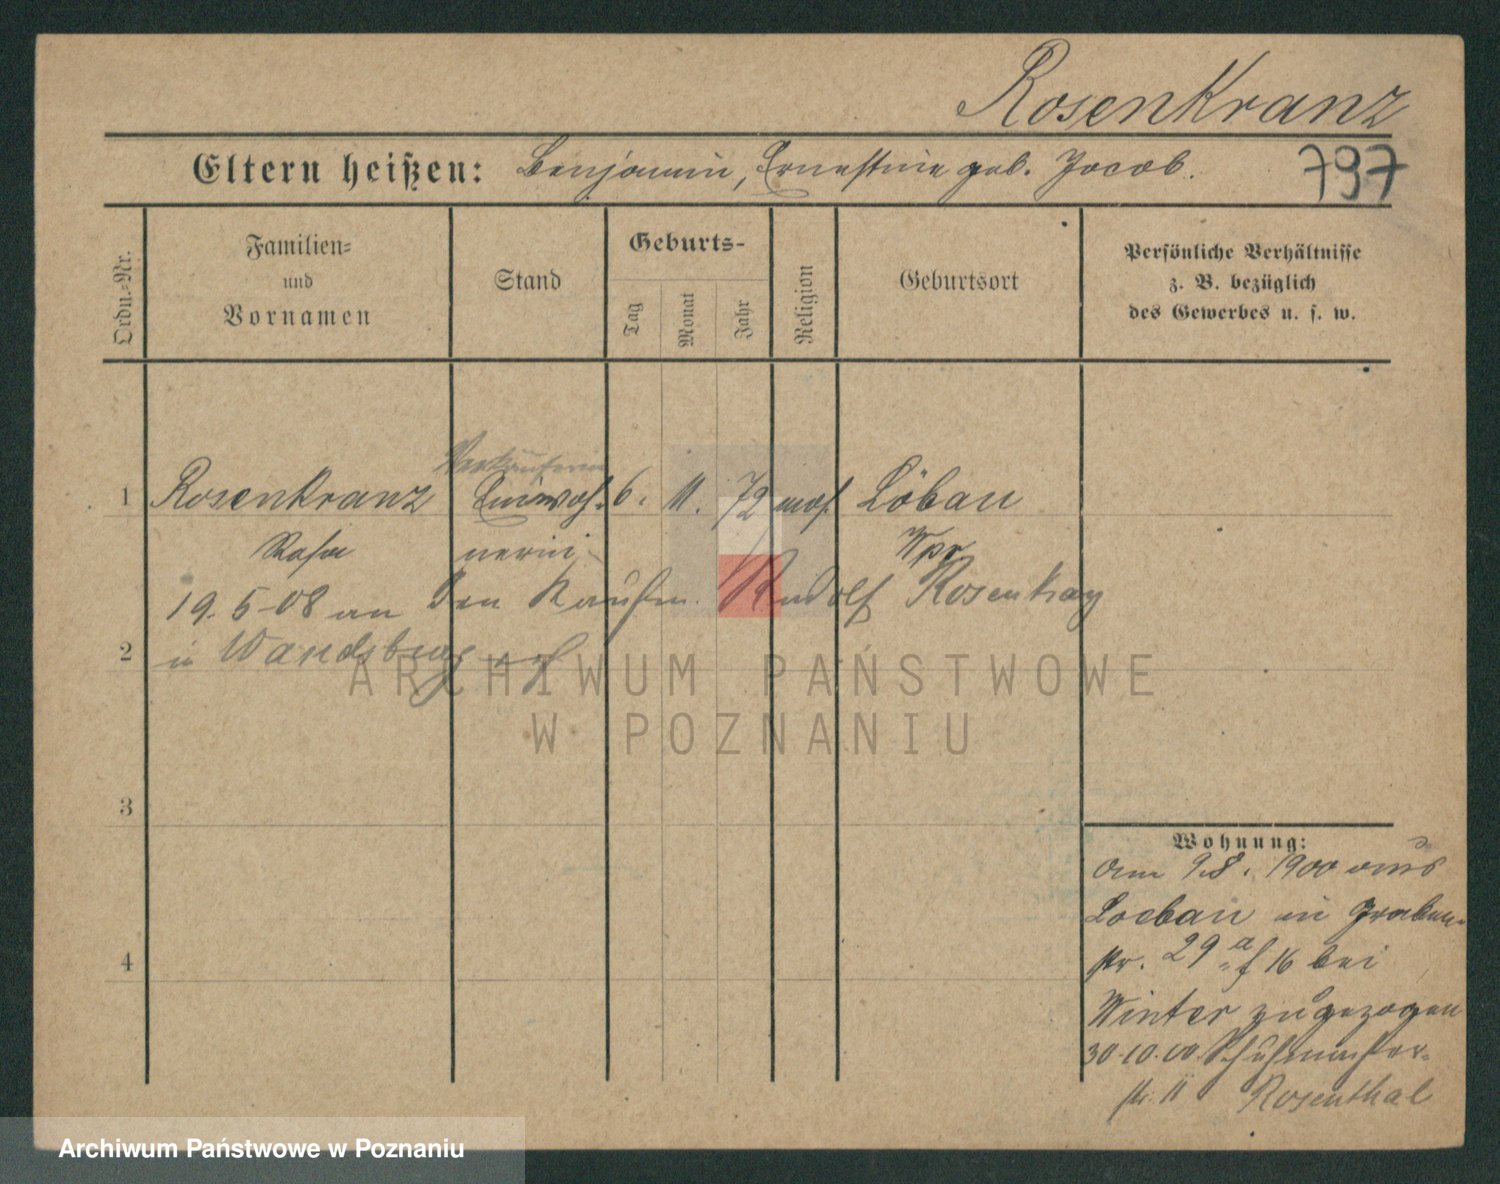 Rosenkranz
Eltern heißen: Benjamin, Ernestine geb. Jacob.
797
Ordn.-Nr.
Familien-
und
Vornamen
Stand
Geburts-
Tag
Monat
Jahr
Religion
Geburtsort
Persönliche Verhältnisse
z. B. bezüglich
des Gewerbes u. s. w.
Verkäuferin
1 Rosenkranz Einwoh- 6. 11. 72 mos. Löbau
Rosa nerin Wpr
19. 5 08 an den Kaufm. Rudolf
2 in Wandsbug
3
4
Wohnung:
Am 9.8. 1900 aus
Loebau in Graben-
str. 29 16 bei
Winter zugezogen
30.10.00 Schuhmacher-
str. 11 Rosenthal
ARCHIWUM PAŃSTWOWE
W POZNANIU
Archiwum Państwowe w Poznaniu